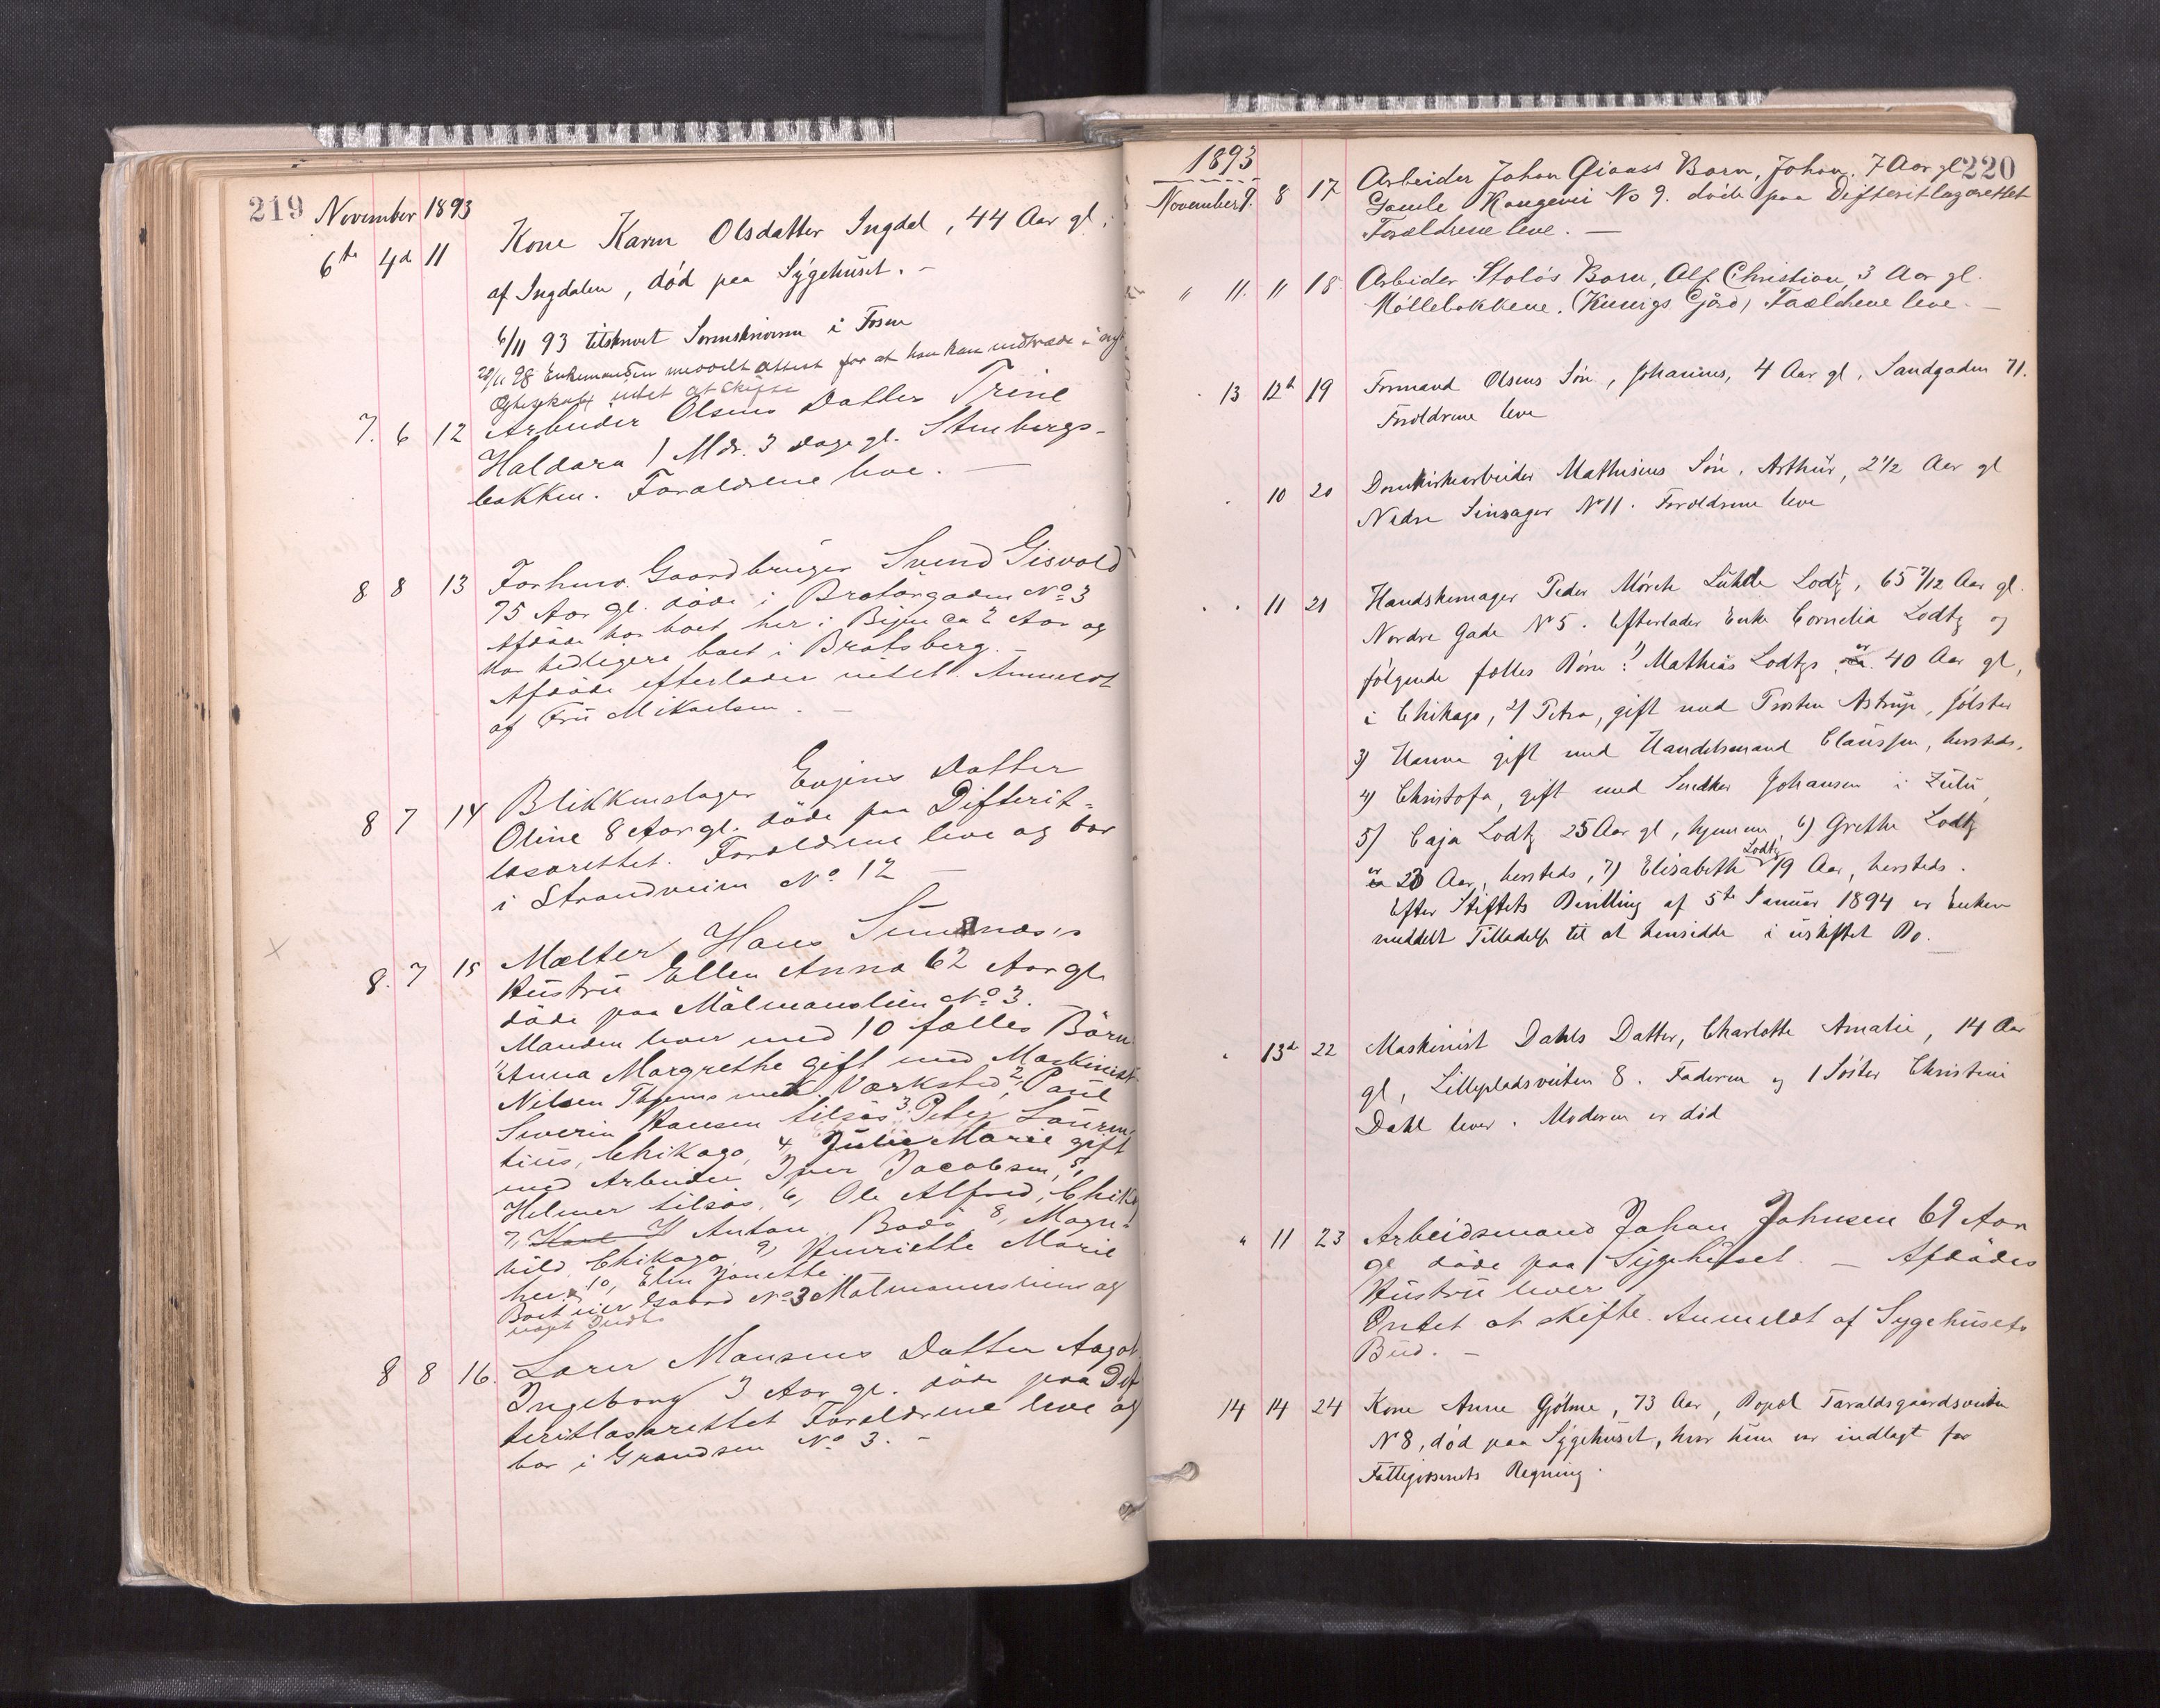 219
November 1893
6te 4de 11 Kone Karen Olsdatter Ingdal, 44 Aar gl,
af Ingdalen, död paa Sygehuset. -
6/11 93 tilskrevet Sorenskriveren i Fosen
29/11 98 Enkemanden meddelt attest for at han kan indtræde i nyt
Ægteskab intet at skifte
7. 6 12 Arbeider Olsens Datter Trine
Haldora 1 Mdr. 3 Dage gl. Stenbergs-
bakken. Forældrene leve. -
8 8 13 Forhenv. Gaardbruger Svend Gisvold
75 Aar gl. döde i Bratörgaden No 3
Afdöde har boet her i Byen ca 2 Aar og
har tidligere boet i Bratsberg. -
Afdöde efterlader intet. Anmeldt
af Fru Mikaelsen. -
8 7 14 Blikkenslager Evjens Datter
Oline 8 Aar gl. döde paa Difterit-
lasarettet. Forældrene leve og bor
i Strandveien No 12 -
8. 7 15 Mælter Hans
Hustru Ellen Anna 62 Aar gl.
döde paa Målmanslien No 3.
Manden lever med 10 fælles Börn
1, Anna Margrethe gift med Maskinist
Nilsen Thjems mek. Værksted, 2, Paul
Severin Hansen tilsös 3, Peter Lauren-
tius, Chikago, 4, Julie Marie gift
med Arbeider Iver Jacobsen, 5,
Helmer tilsös, 6, Ole Alfred, Chika
7, Karl H Anton, Bodö 8, Magn-
hild, Chikago 9, Henriette Marie
her, 10, Elen Jonette
Boet eier Gaard No 3 Målmanslien og
noget Indbo
8 8 16. Larer Mansens Datter Aagot
Ingeborg 3 Aar gl. döde paa Dif
teritlasarettet Forældrene leve og
bor i Grandsen No 3. -
220
1893
November 9. 8 17 Arbeider Johan Barn, Johan. 7 Aar gl
Gamle Kongevei No 9. döde paa Difteritlazarettet
Forældrene leve. -
" 11. 11 18. Arbeider Stolös Barn, Alf Christian, 3 Aar gl.
Möllebakkene. (Kunigs Gård) Forældrene leve. -
13 12te 19 Formand Olsens Sön, Johannes, 4 Aar gl, Sandgaden 71.
Forældrene leve
" 10 20 Domkirkearbeider Mathisens Sön, Arthur, 2 1/2 Aar gl
Nedre Sinsager No 11. Forældrene leve
" " 11 21 Handskemager Peder Mörch Lühde Lodtz, 65 7/12 Aar gl.
Nordre Gade No 5. Efterlader Enke Cornelia Lodtz og
følgende fælles Börn: 1) Mathias Lodtz er 40 Aar gl,
i Chikago, 2) Petra, gift med Presten Astrup, Jölster
3) Hanna gift med Handelsmand Claussen, hersteds,
4) Christofa, gift med Snedker Johansen i Zulu,
5) Caja Lodtz 25 Aar gl, hjemme, 6) Grethe Lodtz
er 23 Aar, hersteds, 7) Elisabeth Lodtz 19 Aar, hersteds.
Efter Stiftets Bevilling af 5te Januar 1894 er Enken
meddelt Tilladelse til at hensidde i uskiftet Bo. -
" 13de 22 Maskinist Dahls Datter, Charlotte Amalie, 14 Aar
gl, Lillepladsveiten 8. Faderen og 1 Söster Christine
Dahl lever. Moderen er död
" 11 23 Arbeidsmand Johan Johnsen 69 Aar
gl döde paa Sygehuset. - Afdödes
Hustru lever
Intet at skifte. Anmeldt af Sygehusets
Bud. -
14 14 24 Kone Anne Gjölme, 73 Aar, Bopæl Taraldsgaardsveiten
No 8, död paa Sygehuset, hvor hun var indlagt for
Fattigvæsenets Regning.